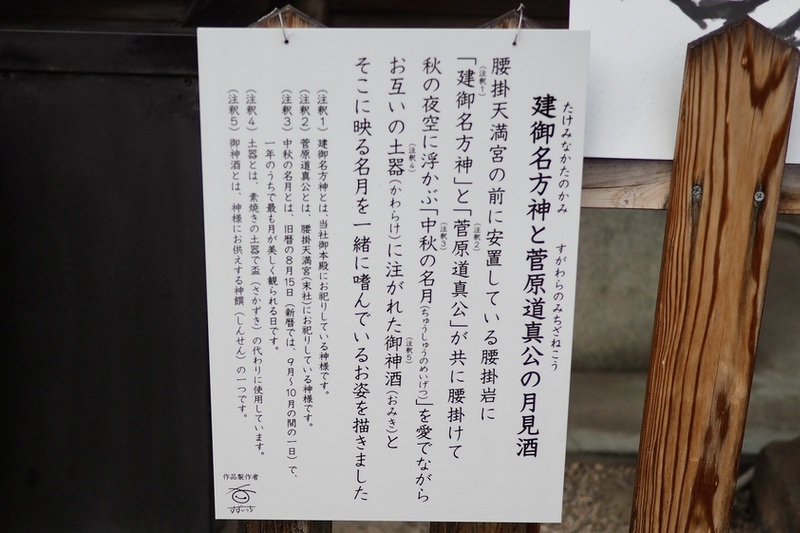 たけみなかたのかみ　すがわらのみちざねこう
建御名方神と菅原道真公の月見酒
腰掛天満宮の前に安置している腰掛岩に
「建御名方神」(注釈1)と「菅原道真公」(注釈2)が共に腰掛けて
秋の夜空に浮かぶ「中秋の名月(ちゅうしゅうのめいげつ)」(注釈3)を愛でながら
お互いの土器(かわらけ)(注釈4)に注がれた御神酒(おみき)(注釈5)と
そこに映る名月を一緒に嗜んでいるお姿を描きました
(注釈1)建御名方神とは、当社御本殿にお祀りしている神様です。
(注釈2)菅原道真公とは、腰掛天満宮(末社)にお祀りしている神様です。
(注釈3)中秋の名月とは、旧暦の8月15日(新暦では、9月〜10月の間の一日)で、
一年のうちで最も月が美しく観られる日です。
(注釈4)土器とは、素焼きの土器で盃(さかずき)の代わりに使用しています。
(注釈5)御神酒とは、神様にお供えする神饌(しんせん)の一つです。
作品製作者